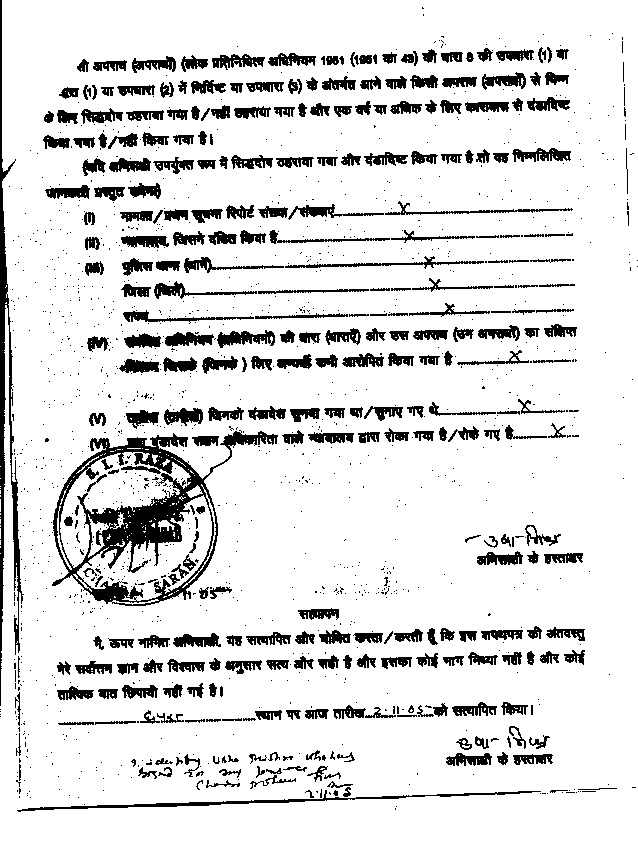 भी अपराध (अपराधों) (लोक प्रतिनिधित्व अधिनियम 1951 (1951 का 43) की धारा 8 की उपधारा (1) या
(1) या उपधारा (2) में निर्दिष्ट या उपधारा (3) के अंतर्गत आने वाले किसी अपराध (अपराधों) से भिन्न
के लिए सिद्धदोष ठहराया गया है/नहीं ठहराया गया है और एक वर्ष या अधिक के लिए कारावास से दंडादिष्ट
किया गया है/नहीं किया गया है।
(यदि अभिसाक्षी उपर्युक्त रूप में सिद्धदोष ठहराया गया और दंडादिष्ट किया गया है तो वह निम्नलिखित
जानकारी प्रस्तुत करेगा)
(I) मामला/प्रथम सूचना रिपोर्ट संख्या/संख्याएं x
(II) न्यायालय, जिसने दंडित किया है x
(III) पुलिस थाना (थानें) x
जिला (जिलें) x
राज्य x
(IV) संबंधित अधिनियम (अधिनियमों) की धारा (धाराएँ) और उस अपराध (उन अपराधों) का संक्षिप्त
जिसके (जिनके ) लिए अभ्यर्थी सभी आरोपित किया गया है x
(V) तारीख (तारीखें) जिनको दंडादेश सुनाया गया था/सुनाए गए थे x
(VI) क्या दंडादेश सक्षम अधिकारिता वाले न्यायालय द्वारा रोका गया है/रोके गए है x
S. I. I. RAZA
CHAPRA SARAN
11-05
उषा मिश्रा
अभिसाक्षी के हस्ताक्षर
सत्यापन
मै, ऊपर नामित अभिसाक्षी, यह सत्यापित और घोषित करता/करती हूँ कि इस शपथपत्र की अंतवस्तु
मेरे सर्वोत्तम ज्ञान और विश्वास के अनुसार सत्य और सही है और इसका कोई भाग मिथ्या नहीं है और कोई
तात्विक बात छिपायी नहीं गई है।
छपरा स्थान पर आज तारीख 2-11-05 को सत्यापित किया।
उषा मिश्रा
अभिसाक्षी के हस्ताक्षर
I identify Usha Mishra who has
signed in my presence
2.11.05